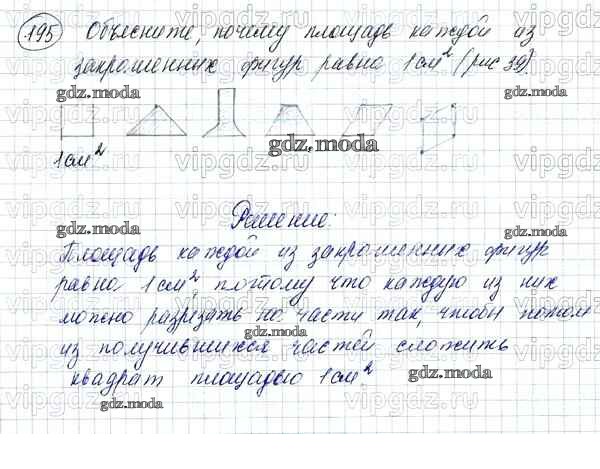 195 Объясните, почему площадь каждой из
закрашенных фигур равна 1 см² (рис 39).
1 см²
Решение:
Площадь каждой из закрашенных фигур
равна 1 см², потому что каждую из них
можно разрезать на части так, чтобы потом
из получившихся частей сложить
квадрат площадью 1 см²
gdz.moda
gdz.moda
gdz.moda
gdz.moda
gdz.moda
gdz.moda
gdz.moda
gdz.moda
gdz.moda
vipgdz.ru